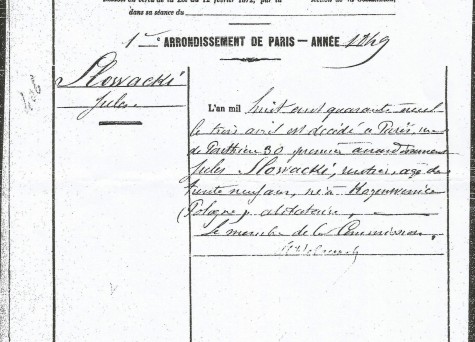 dans sa séance du
1er ARRONDISSEMENT DE PARIS — ANNÉE 1849
Slowacki
Jules
L'an mil huit cent quarante neuf
le trois avril est décédé à Paris, rue
de Ponthieu 30 premier arrondissement
Jules Slowacki, rentier, âgé de
trente neuf ans, né à Krzemieniec
(Pologne), célibataire,
Le membre de la Commission,